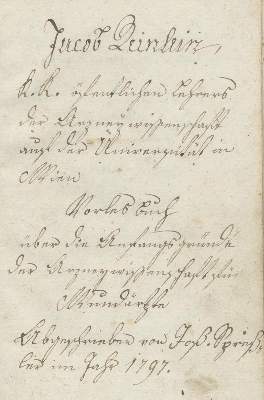 Jacob Reinlein,
k. k. öffentlichen Lehrers
der Arzneywissenschaft
auf der Universität in
Wien
Vorlesbuch
über die Anfangsgründe
der Arzneywissenschaft für
Wundärzte
Abgeschrieben von Jos. Spreß-
ler im Jahr 1797.